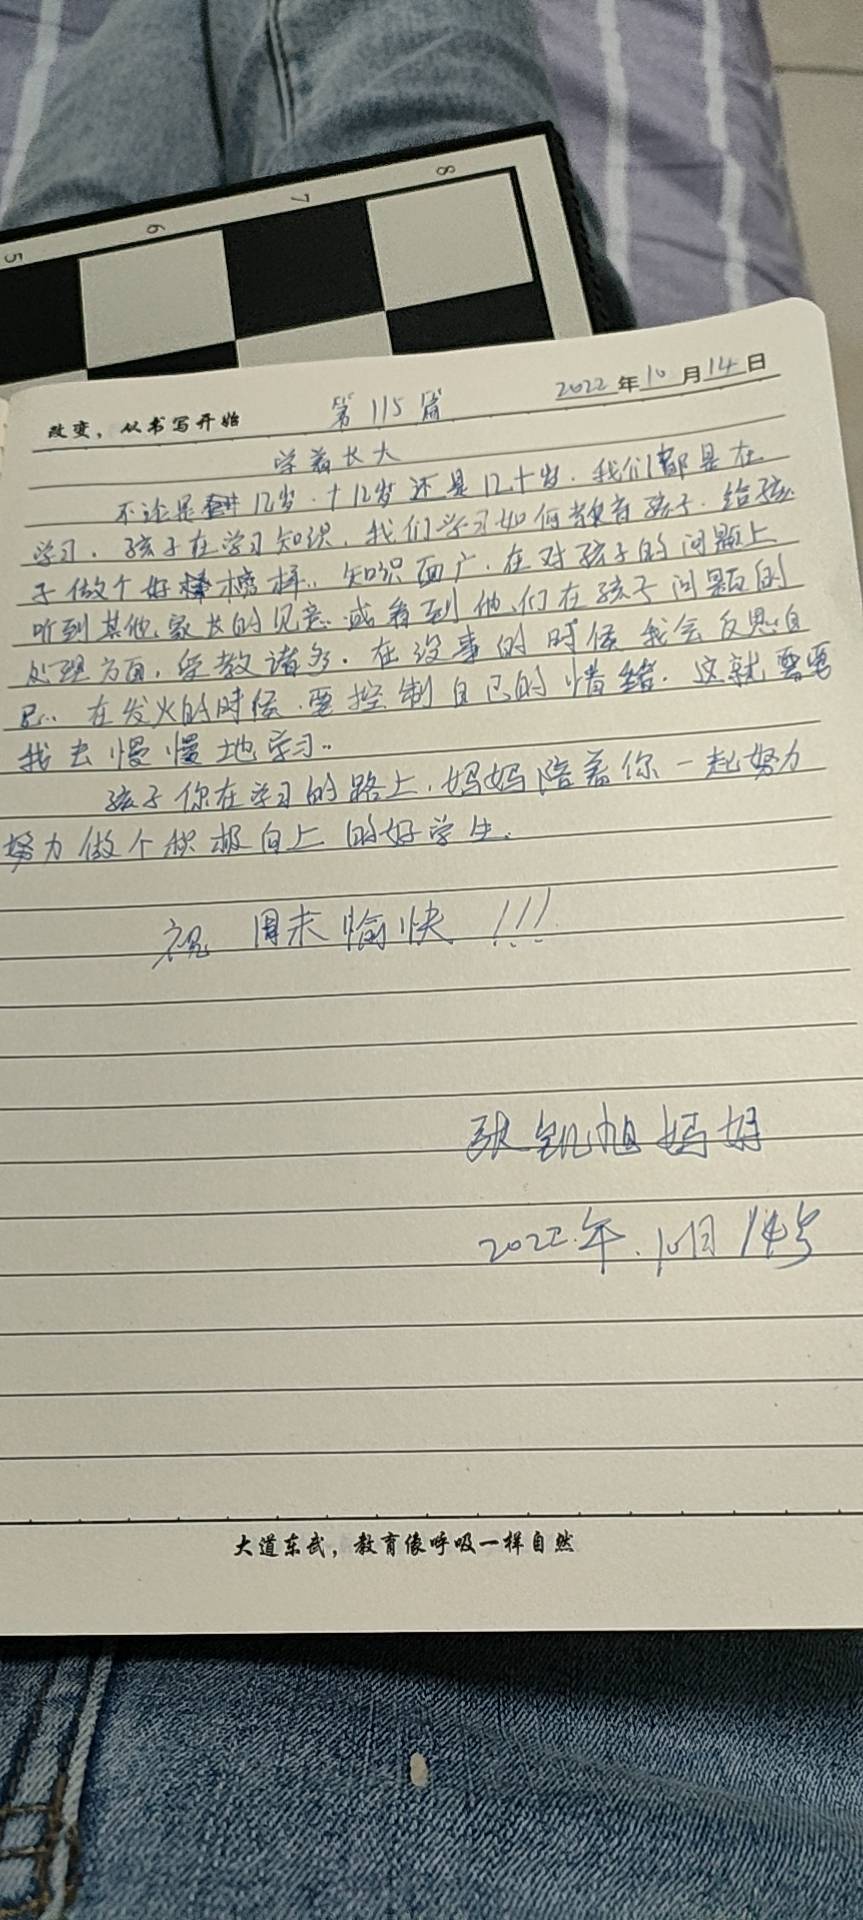 5 6 7 8
2022年10月14日
改变，从书写开始 第115篇
学着长大
不论是 12岁．十12岁还是12十岁．我们都是在
学习．孩子在学习知识，我们学习如何教育孩子．给孩
子做个好榜样．．知识面广．在对孩子的问题上
听到其他家长的见意．或看到他们在孩子问题的
处理方面，受教诸多．在没事的时候我会反思自
己．．在发火的时候．要控制自己的情绪．这就需要
我去慢慢地学习．．
孩子你在学习的路上．妈妈陪着你一起努力
努力做个积极向上的好学生．
祝 周末愉快！！！
张凯旭妈妈
2022.年.10月14号
大道东武，教育像呼吸一样自然